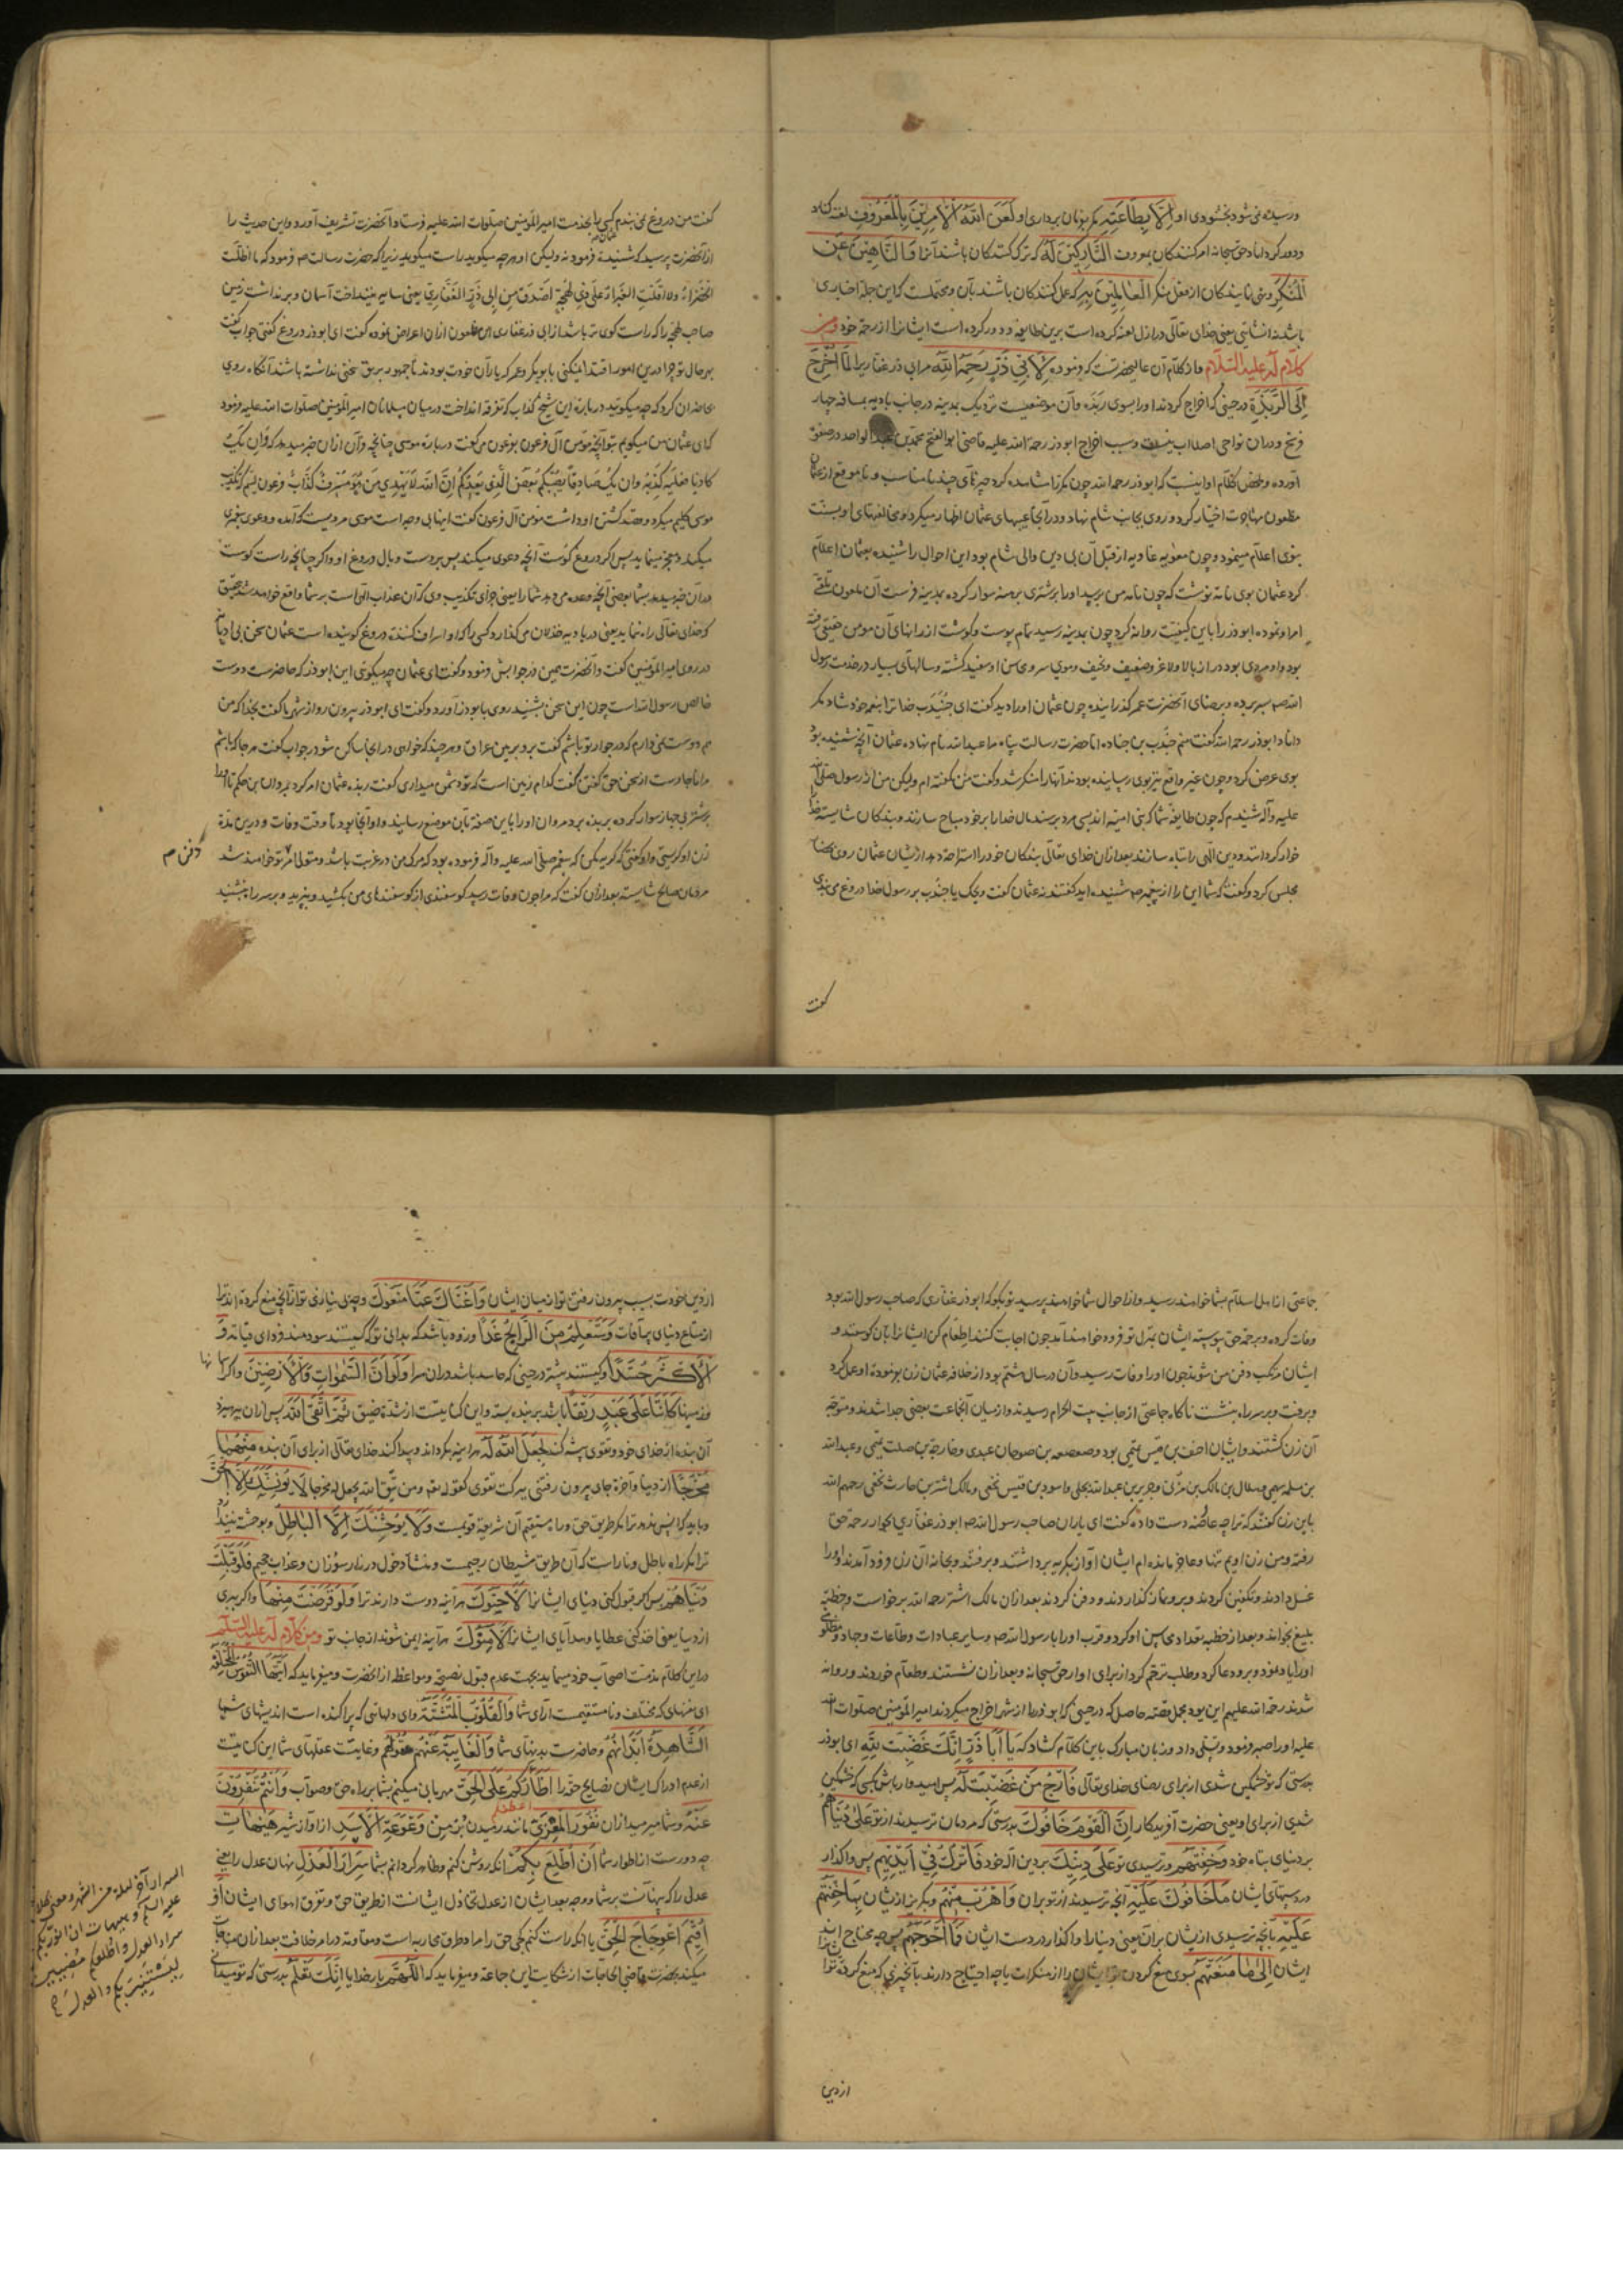 ورسیده نمی شود بخشنودی او اِلّا بِطاعَتِهِ مگر بفرمان برداری او لَعَنَ اللهُ الْآمِرینَ بِالْمَعْروفِ لعنه کناد
ودور کرداناد حق سبحانه امر کنندکان بمعروف التّارِکینَ لَهُ که ترک کنندکان باشند آنرا وَالنّاهینَ عَنِ
الْمُنْکَرِ ونهی نمایندکان از فعل منکر الْعامِلینَ بِهِ که عمل کنندکان باشند بآن ومحتملست که این جمله اخباری
باشد نه انشائی یعنی خدای تعالی در ازل لعنه کرده است برین طایفه ودور کرده است ایشانرا از رحمة خود ومن
کلام له علیه السلام واز کلام آن عالیحضرتست که فرموده لِاَبی ذَرٍّ رَحِمَهُ اللهُ مر ابی ذر غفاریرا لَمّا اُخْرِجَ
اِلَی الرَّبَذَةِ درحینی که اخراج کردند او را بسوی ربذه وآن موضعیست نزدیک بمدینه در جانب بادیه بمسافه چهار
فرسخ ودران نواحی اصلا آب نیست وسبب اخراج ابوذر رحمة الله علیه قاضی ابو الفتح محمد بن عبد الواحد در
آورده وملخص کلام او اینست که ابوذر رحمه الله چون مکررا مشاهده کرد چیزهای چند نامناسب و ناموقع از عثمان
مظعون مهاجرت اختیار کرد وروی بجانب شام نهاد ودر آنجا عیبهای عثمان اظهار میکرد ومخالفتهای او بسنت
نبوی اعلام مینمود وچون معویه عاویه از قبل آن بی دین والی شام بود این احوال را شنیده بعثمان اعلام
کرد عثمان بوی نامه نوشت که چون نامه من برسد او را بر شتری برهنه سوار کرده بمدینه فرست آن ملعون تلقی
امر او نموده ابوذر را باین کیفیت روانه کرد چون بمدینه رسید تمام پوست وکوشت از رانهای آن مومن حقیقی رفته
بود واو مردی بود دراز بالا ولاغر وضعیف ونحیف وموی سر وریش او سفید کشته وسالهای بسیار در خدمت رسول
الله صم بسر برده وبرضای آنحضرت عمر کذرانیده چون عثمان او را دید کفت ای جُنَیدَب خدا ترا بنعم خود شاد مکر
داناد ابوذر رحمه الله کفت منم جندب بن جناده اما حضرت رسالت پناه مرا عبد الله نام نهاده عثمان آنچه شنیده بود
بوی عرض کرد وچون غیر واقع نیز بوی رسانیده بودند آنها را منکر شد وکفت من نکفته ام ولیکن من از رسول صلی الله
علیه وآله شنیدم که چون طایفه شما که بنی امیه اند بسی مرد برسند مال خدا را بر خود مباح سازند وبندکان شایسته خدا
خوار کردانند ودین الهی را تباه سازند بعد ازان خدای تعالی بندکان خود را استراحة دهد از ایشان عثمان روی بحضار
مجلس کرد وکفت که شما این را از پیغمبر صم شنیده اید کفتند نه عثمان کفت ویحک یا جندب بر رسول خدا دروغ می بندی
کفت
کفت من دروغ نمی بندم کسی را بخدمت امیر المؤمنین صلوات الله علیه فرستاد آنحضرت تشریف آورد واین حدیث را
از آنحضرت پرسید که شنیدهٔ فرمود نه ولیکن او هر چه میکوید راست میکوید زیرا که حضرت رسالت صم فرمود که ما اظلت
الخضراء ولا اقلت الغبراء علی ذی لهجة اصدق من ابی ذر الغفاری یعنی سایه نینداخت آسمان وبر نداشت زمین
صاحب لهجه را که راست کوی تر باشد از ابی ذر غفاری آن ملعون ازان اعراض نموده کفت ای ابوذر دروغ کفتی جواب کفت
بهر حال تو چرا درین امور اقتدا نمیکنی بابوبکر وعمر که یاران خودت بودند تا جمهور بر تو سخنی نداشته باشند آنکاه روی
بحاضران کرد که چه میکوئید درباره این شیخ کذاب که تفرقه انداخت در میان مسلمانان امیر المؤمنین صلوات الله علیه فرمود
که ای عثمان من میکویم بتو آنچه مومن آل فرعون بفرعون می کفت درباره موسی چنانچه قرآن ازان خبر میدهد که وَاِن یَکُ
کاذبا فعلیه کذبه وان یک صادقا یصبکم بعض الذی یعدکم ان الله لا یهدی من هو مسرف کذاب فرعون لعنه الله تکذیب
موسی کلیم میکرد وقصد کشتن او داشت مؤمن آل فرعون کفت اینها بی وجه است موسی مردیست که آمده ودعوی پیغمبری
میکند ومعجز مینماید پس اکر دروغ کوست آنچه دعوی میکند پس بروست وبال دروغ او واکر چنانچه راست کوست
دران خبر میدهد بشما بعضی آنچه وعده می دهد شما را یعنی جزای تکذیب وی که آن عذاب الهی است بر شما واقع خواهد شد بتحقیق
که خدای تعالی راه ننماید یعنی در بادیه خذلان می کذارد کسی را که او اسراف کننده دروغ کوینده است عثمان سخن بی ادبانه
در روی امیر المؤمنین کفت وآنحضرت همین در جوابش فرمود وکفت ای عثمان چه میکوئی این ابوذر که حاضرست دوست
خالص رسول الله است چون این سخن بشنید روی بابوذر آورد وکفت ای ابوذر بیرون رو از شهر ما کفت بخدا که من
هم دوست نمی دارم که در جوار تو باشم کفت برو بزمین عراق وهر چند که خواهی در انجا ساکن شو در جواب کفت هر جا که باشم
مرا ناچارست از سخن حق کفتن کفت کدام زمین است که تو دشمن میداری کفت ربذه عثمان امر کرد بمروان بن حکم تا او را
بر شتری جهاز سوار کرده بربذه برد مروان او را باین صفة بآن موضع رسانید واو آنجا بود تا وقت وفات ودرین مدة
زن او کریستی واو کفتی که کریه مکن که پیغمبر صلی الله علیه وآله فرموده بود که مرک من در غربت باشد ومتولی امر تو خواهند شد
دفن م
مردمان صالح شایسته بعد ازان کفت که مرا چون وفات رسد کوسفندی از کوسفندهای من بکشید وبپزید وبر سر راه بنشینید
جماعتی از اهل اسلام بشما خواهند رسید واز احوال شما خواهند پرسید تو بکو که ابوذر غفاری که صاحب رسول الله بود
وفات کرده وبرحمة حق پیوسته ایشان بمنزل تو فرود خواهند آمد چون اجابت کنند اطعام کن ایشانرا بآن کوسفند و
ایشان مرتکب دفن من شوند چون او را وفات رسید وآن در سال هشتم بود از خلافة عثمان زن بفرموده او عمل کرد
وبرفت وبر سر راه بنشست ناکاه جماعتی از جانب بیت الحرام رسیدند واز میان آنجماعت بعضی جدا شدند ومتوجه
آن زن کشتند وایشان احنف بن قیس تمیمی بود وصعصعه بن صوحان عبدی وخارجة بن صلت تمیمی وعبد الله
بن سلمه سهمی وهلال بن مالک بن مزنی وجریر بن عبد الله بجلی واسود بن قیس نخعی ومالک اشتر بن حارث نخعی رحمهم الله
باین زن کفتند که ترا چه عارضه دست داده کفت ای یاران صاحب رسول الله صم ابوذر غفاری بجوار رحمة حق
رفته ومن زن اویم تنها وعاجز مانده ام ایشان آواز بکریه برداشتند وبرفتند وبخانه آن زن فرود آمدند او را
غسل دادند وتکفین کردند وبرو نماز کذاردند ودفن کردند بعد ازان مالک اشتر رحمه الله برخواست وخطبه
بلیغ بخواند وبعد از خطبه تعداد محاسن او کرد وقرب او را با رسول الله صم وسایر عبادات وطاعات وجهاد ومظلومی
او را یاد نمود وبرو دعا کرد وطلب ترحم کرد از برای او از حق سبحانه وبعد ازان نشستند وطعام خوردند وروانه
شدند رحمة الله علیهم این بود مجمل قصه حاصل که درحینی که ابوذر را از شهر اخراج میکردند امیر المؤمنین صلوات الله
علیه او را صبر فرمود وتسلی داد وزبان مبارک باین کلام کشاد که یا اَبا ذَرٍّ اِنَّکَ غَضِبْتَ لِلّهِ ای ابوذر
بدرستی که تو خشمکین شدی از برای رضای خدای تعالی فَارْجُ مَنْ غَضِبْتَ لَهُ پس امیدوار باش کسی که خشمکین
شدی از برای او یعنی حضرت آفریدکار اِنَّ الْقَوْمَ خافُوکَ بدرستی که مردمان ترسیدند از تو عَلی دُنْیاهُمْ
بر دنیای تباه خود وَخِفْتَهُمْ وترسیدی تو عَلی دینِکَ بر دین آله خود فَاتْرُکْ فی اَیْدیهِمْ پس واکذار
در دستهای ایشان ما خافُوکَ عَلَیْهِ آنچه ترسیدند از تو بران وَاهْرُبْ مِنْهُمْ وبکریز از ایشان بِما خِفْتَهُمْ
عَلَیْهِ بآنچه ترسیدی از ایشان بران یعنی دنیا را واکذار در دست ایشان فَما اَحْوَجَهُمْ پس چه محتاج اند
ایشان اِلی ما مَنَعْتَهُمْ بسوی منع کردن تو ایشان را از منکرات یا چه احتیاج دارند بآنچیزی که منع کردهٔ تو
از دین
از دین خودت بسبب بیرون رفتن تو از میان ایشان وَاَغْناکَ عَمّا مَنَعُوکَ وچه بی نیازی تو از آنچه منع کرده اند ترا
از متاع دنیای پر آفات وَسَتَعْلَمُ مَنِ الرّابِحُ غَدًا وزود باشد که بدانی تو که کیستند سودمند فردای قیامة وَ
الْاَکْثَرُ حُسَّدًا وکیستند بیشتر درحینی که حاسد باشند دران سرا وَلَوْ اَنَّ السَّمواتِ وَالْاَرَضینَ واکر آسمانها
وزمینها کانَتا عَلی عَبْدٍ رَتْقًا باشد بر بنده بسته واین کنایتست از شدة ضیق ثُمَّ اتَّقَی اللهَ پس ازان بپرهیزد
آن بنده از خدای خود وتقوی پیشه کند لَجَعَلَ اللهُ لَهُ هر آینه بکرداند وپیدا کند خدای تعالی از برای آن بنده مِنْهُما
مَخْرَجًا از دنیا وآخرة جای بیرون رفتنی ببرکت تقوی کقوله تعالی ومن یتق الله یجعل له مخرجا لا یُؤْنِسَنَّکَ اِلَّا الْحَقُّ
وباید که انس ندهد ترا مکر طریق حق وراه مستقیم آن شریعة قویمست وَلا یُوحِشَنَّکَ اِلَّا الْباطِلُ وبوحشة نیندازد
ترا مکر راه باطل وناراست که آن طریق شیطان رجیمست ومنشأ دخول در نار سوزان وعذاب جحیم فَلَوْ قَبِلْتَ
دُنْیاهُمْ پس اکر قبول کنی دنیای ایشانرا لَاَحَبُّوکَ هر آینه دوست دارند ترا وَلَوْ قَرَضْتَ مِنْها واکر ببری
از دنیا یعنی اخذ کنی عطایا وهدایای ایشانرا لَاَمِنُوکَ هر آینه ایمن شوند از جانب تو ومن کلام له علیه السلام
در این کلام مذمت اصحاب خود مینماید بجهت عدم قبول نصیحة ومواعظ از آنحضرت ومیفرماید که اَیَّتُهَا النُّفُوسُ الْمُخْتَلِفَةُ
ای نفسهای که مختلف ونامستقیمست آرای شما وَالْقُلُوبُ الْمُتَشَتِّتَةُ وای دلهائی که پراکنده است اندیشهای شما
الشّاهِدَةُ اَبْدانُهُمْ وحاضرست بدنهای شما وَالْغایِبَةُ عَنْهُمْ عُقُولُهُمْ وغایبست عقلهای شما این کنایتست
از عدم ادراک ایشان نصایح حقه را اَظْاَرُکُمْ عَلَی الْحَقِّ مهربانی میکنم بشما بر راه حق وصواب وَاَنْتُمْ تَنْفِرُونَ
اعطفکم
عَنْهُ وشما میرمید ازان نُفُورَ الْمِعْزی مانند رمیدن بز مِنْ وَعْوَعَةِ الْاَسَدِ از آواز شیر هَیْهاتَ
چه دورست از اطوار شما اَنْ اُطْلِعَ بِکُمْ آنکه روشن کنم وظاهر کردانم بشما سِرارَ الْعَدْلِ نهان عدل را یعنی
عدلی را که پنهانست بر شما ووجه بعد ایشان از عدل تخاذل ایشانست از طریق حق وتفرق اهوای ایشان اَوْ
اُقیمَ اعْوِجاجَ الْحَقِّ یا آنکه راست کنم کجی حق را مراد طرق محاربه است ومعاونة در امر خلافت بعد ازان مناجات
میکند بحضرت قاضی الحاجات از شکایت این جماعة ومیفرماید که اَللّهُمَّ بار خدایا اِنَّکَ تَعْلَمُ بدرستی که تو میدانی
السرار آخر لیلة من الشهر ومعنی کلامه
علیه السلم هیهات ان انور بکم
سرار العدل واطلعکم مضیئین
لیستنیر بکم العدل